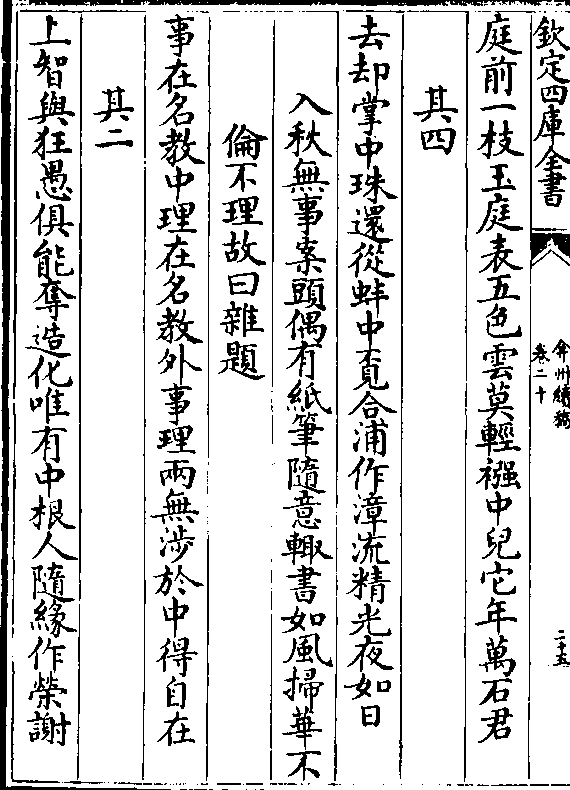 欽定四庫全書
弇州續稿
卷二十
二十五
庭前一枝玉庭表五色雲莫輕襁中兒它年萬石君
其四
去却掌中珠還從蚌中覔合浦作漳流精光夜如日
入秋無事案頭偶有紙筆隨意輙書如風掃華不
倫不理故曰雜題
事在名教中理在名教外事理兩無涉於中得自在
其二
上智與狂愚俱能奪造化唯有中根人隨緣作榮謝